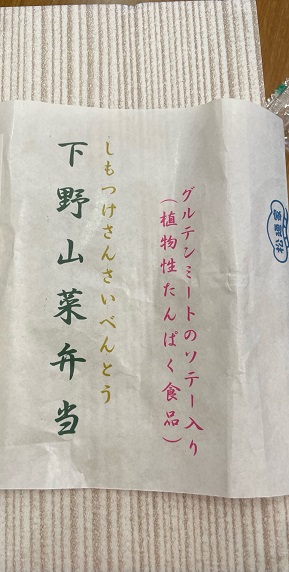 グルテンミートのソテー入り
(植物性たんぱく食品)
しもつけさんさいべんとう
下野山菜弁当
松廼家